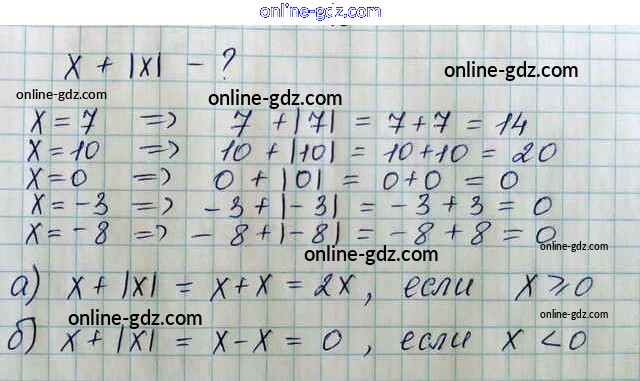 online-gdz.com
x + |x| - ?
online-gdz.com
online-gdz.com
online-gdz.com
x = 7 => 7 + |7| = 7 + 7 = 14
x = 10 => 10 + |10| = 10 + 10 = 20
x = 0 => 0 + |0| = 0 + 0 = 0
x = -3 => -3 + |-3| = -3 + 3 = 0
x = -8 => -8 + |-8| = -8 + 8 = 0
online-gdz.com
online-gdz.com
а) x + |x| = x + x = 2x, если x ⩾ 0
online-gdz.com
online-gdz.com
б) x + |x| = x - x = 0, если x < 0